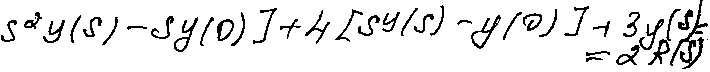 s²y(s) - sy(0)] + 4[sy(s) - y(0)] + 3y(s) =
= 2R(s)